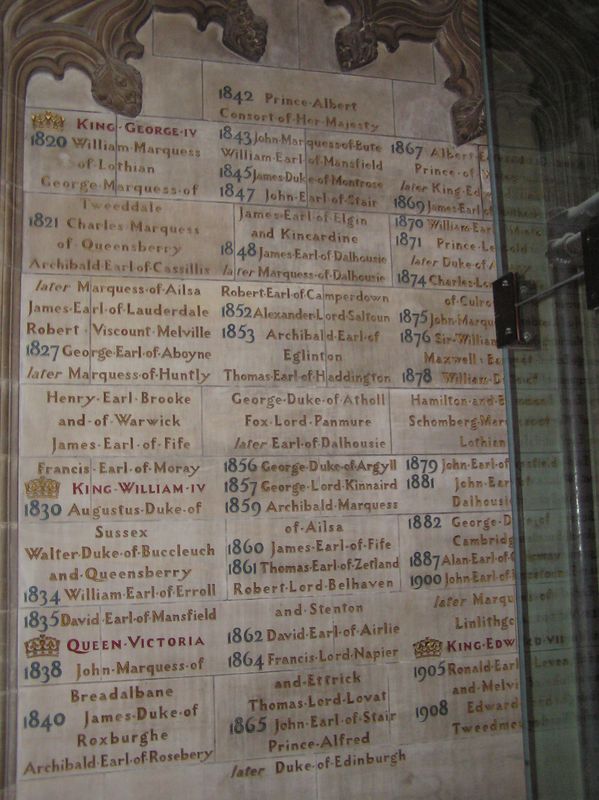 KING·GEORGE·IV
1820 William·Marquess
of·Lothian
George·Marquess·of
Tweeddale
1821 Charles Marquess
of Queensberry
Archibald·Earl·of·Cassillis
later Marquess·of·Ailsa
James·Earl·of·Lauderdale
Robert·Viscount·Melville
1827 George·Earl·of·Aboyne
later Marquess·of·Huntly
Henry·Earl·Brooke
and·of·Warwick
James·Earl·of·Fife
Francis·Earl·of·Moray
KING·WILLIAM·IV
1830 Augustus·Duke·of
Sussex
Walter·Duke·of·Buccleuch
and·Queensberry
1834 William·Earl·of·Erroll
1835 David·Earl·of·Mansfield
QUEEN·VICTORIA
1838 John·Marquess·of
Breadalbane
1840 James·Duke·of
Roxburghe
Archibald·Earl·of·Rosebery
1842 Prince·Albert
Consort·of·Her·Majesty
1843 John·Marquess·of·Bute
William·Earl·of·Mansfield
1845 James·Duke·of·Montrose
1847 John·Earl·of·Stair
James·Earl·of·Elgin
and·Kincardine
1848 James·Earl·of·Dalhousie
later Marquess·of·Dalhousie
Robert·Earl·of·Camperdown
1852 Alexander·Lord·Saltoun
1853 Archibald·Earl·of
Eglinton
Thomas·Earl·of·Haddington
George·Duke·of·Atholl
Fox·Lord·Panmure
later Earl·of·Dalhousie
1856 George·Duke·of·Argyll
1857 George·Lord·Kinnaird
1859 Archibald·Marquess
of·Ailsa
1860 James·Earl·of·Fife
1861 Thomas·Earl·of·Zetland
Robert·Lord·Belhaven
and·Stenton
1862 David·Earl·of·Airlie
1864 Francis·Lord·Napier
and·Ettrick
Thomas·Lord·Lovat
1865 John·Earl·of·Stair
Prince·Alfred
later Duke·of·Edinburgh
1867 Albert
Prince·of
later King
1869 James·Earl
1870 William·Earl
1871 Prince
later Duke·of
1874 Charles
of
1875 John
1876 Sir·William
Maxwell
1878 William
Hamilton·and
Schomberg
Lothian
1879 John·Earl·of
1881 John·Earl
Dalhousie
1882 George
Cambridge
1887 Alan·Earl·of
1900 John·Earl·of
later Marquess
Linlithgow
KING·EDWARD·VII
1905 Ronald·Earl Leven
and·Melville
1908 Edward